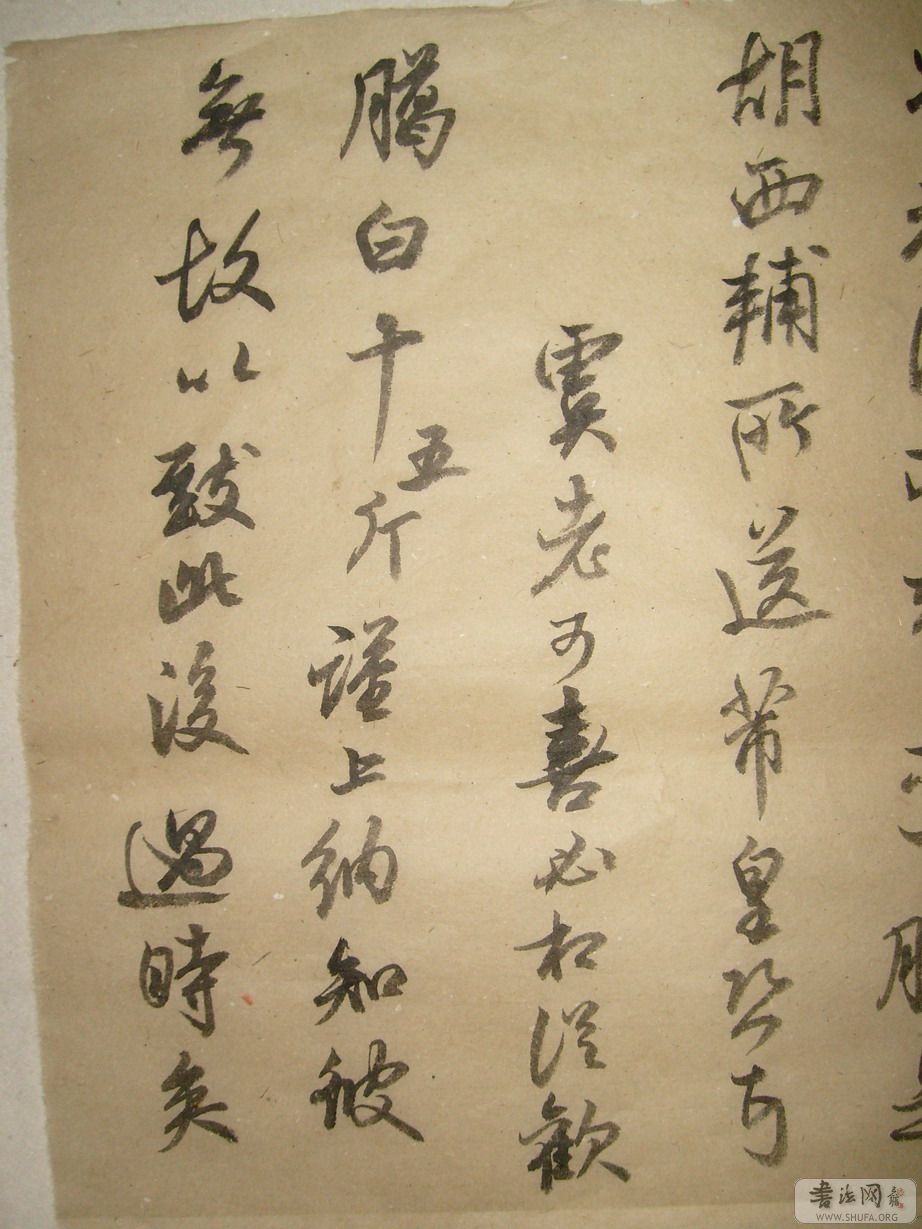 胡西輔所送帶皇皆可
老可喜必相從歡
臈白十五斤謹上納知彼
無故以致此後過時矣
書法网
WWW.SHUFA.ORG